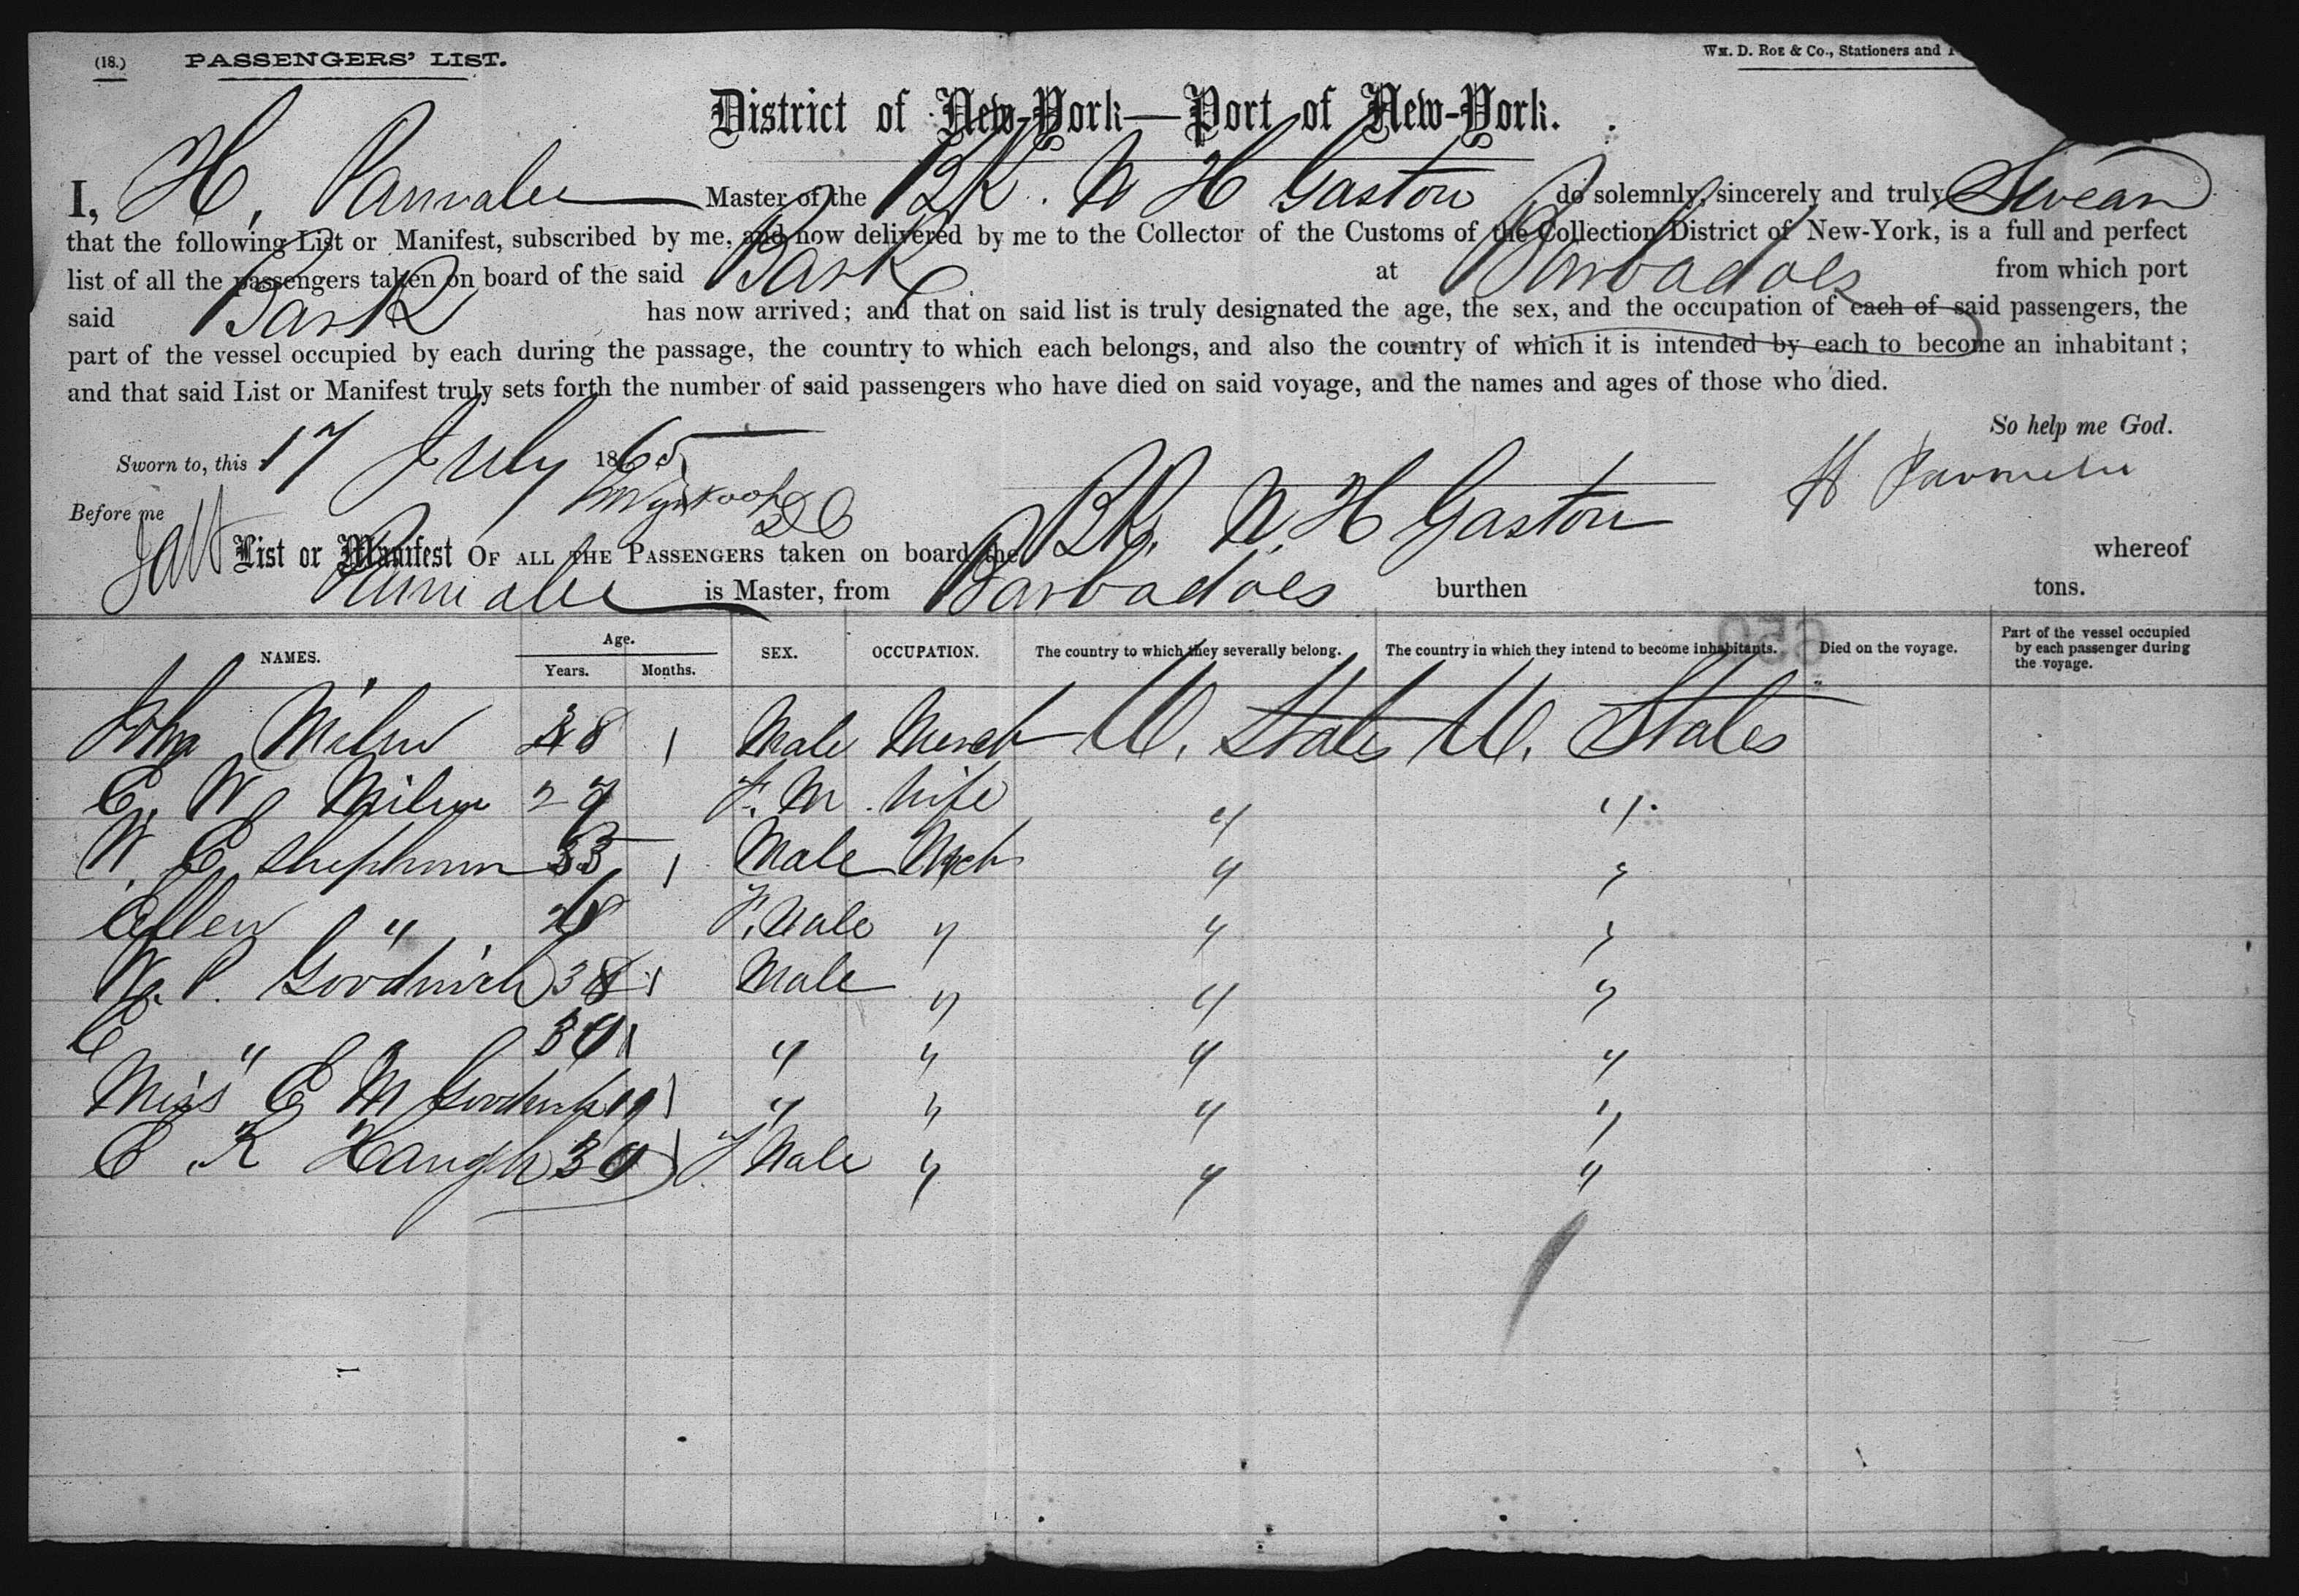 (18.) PASSENGERS' LIST. WM. D. ROE & Co., Stationers and
District of New-York—Port of New-York.
I, H. Parmalee Master of the BK. N H Gaston do solemnly, sincerely and truly Swear
that the following List or Manifest, subscribed by me, and now delivered by me to the Collector of the Customs of the Collection District of New-York, is a full and perfect
list of all the passengers taken on board of the said Bark at Barbadoes from which port
said Bark has now arrived; and that on said list is truly designated the age, the sex, and the occupation of each of said passengers, the
part of the vessel occupied by each during the passage, the country to which each belongs, and also the country of which it is intended by each to become an inhabitant;
and that said List or Manifest truly sets forth the number of said passengers who have died on said voyage, and the names and ages of those who died.
So help me God.
Sworn to, this 17 July 1865 H Parmelee
Before me Wynkoop DC
List or Manifest OF ALL THE PASSENGERS taken on board the BK. N. H Gaston whereof
Parmalee is Master, from Barbadoes burthen tons.
NAMES. Age. Years. Months. SEX. OCCUPATION. The country to which they severally belong. The country in which they intend to become inhabitants. Died on the voyage. Part of the vessel occupied by each passenger during the voyage.
650
John Milne 48 1 Male Merch U. States U. States
E. W Milne 29 F. M. Wife " "
W. E Shephman 33 1 Male Mech " "
Ellen " 28 F. Male " " "
W. P. Goodrich 38 1 Male " " "
E " 30 1 " " " "
Miss E M Goodrich 19 1 " " " "
C K Haugh 30 1 F Male " " "